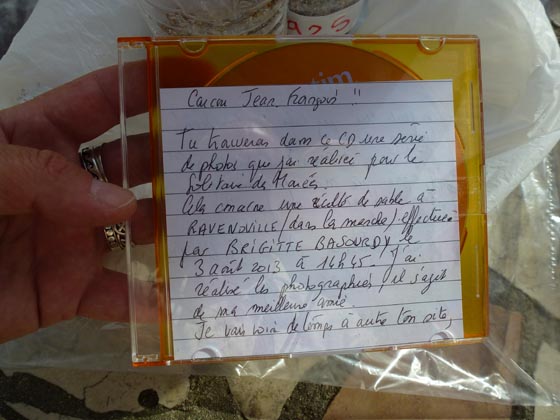 925
im
Coucou Jean François !!
Tu trouveras dans ce CD une série
de photos que j'ai réalisée pour le
Solitaire des Marées.
Cela concerne une récolte de sable à
RAVENOVILLE/dans la manche/effectuée
par BRIGITTE BASOURDY le
3 août 2013 à 14h45/j'ai
réalisé les photographies/il s'agit
de sa meilleure amie.
Je vais voir de temps à autre ton site,